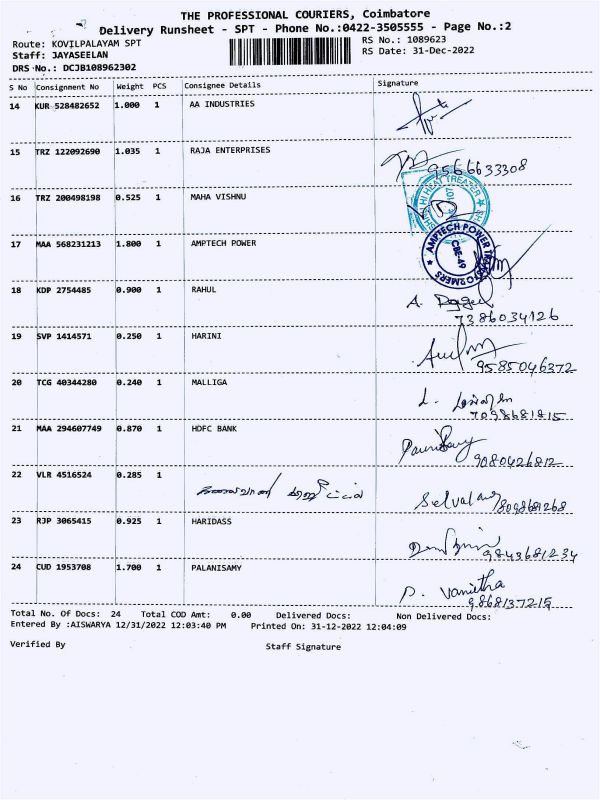 THE PROFESSIONAL COURIERS, Coimbatore
Delivery Runsheet - SPT - Phone No.:0422-3505555 - Page No.:2
Route: KOVILPALAYAM SPT
RS No.: 1089623
Staff: JAYASEELAN
RS Date: 31-Dec-2022
DRS No.: DCJB108962302
S No Consignment No Weight PCS Consignee Details Signature
14 KUR 528482652 1.000 1 AA INDUSTRIES
15 TRZ 122092690 1.035 1 RAJA ENTERPRISES
9566633308
16 TRZ 200498198 0.525 1 MAHA VISHNU
17 MAA 568231213 1.800 1 AMPTECH POWER
AMPTECH POWER TRANSFORMERS
CBE-49
18 KDP 2754485 0.900 1 RAHUL
7386034126
19 SVP 1414571 0.250 1 HARINI
9585046372
20 TCG 40344280 0.240 1 MALLIGA
7098681815
21 MAA 294607749 0.870 1 HDFC BANK
9080426812
22 VLR 4516524 0.285 1
Selvaraj
8098681268
23 RJP 3065415 0.925 1 HARIDASS
9843681234
24 CUD 1953708 1.700 1 PALANISAMY
P. Vanietha
9868137215
Total No. Of Docs: 24 Total COD Amt: 0.00 Delivered Docs: Non Delivered Docs:
Entered By :AISWARYA 12/31/2022 12:03:40 PM Printed On: 31-12-2022 12:04:09
Verified By Staff Signature